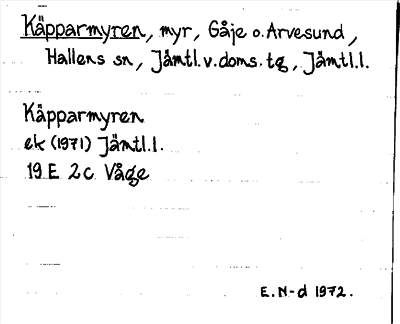 Käpparmyren, myr, Gåje o. Arvesund,
Hallens sn, Jämtl.v.doms.tg, Jämtl.l.
Käpparmyren
ek (1971) Jämtl.l.
19 E 2c Våge
E.N-d 1972.